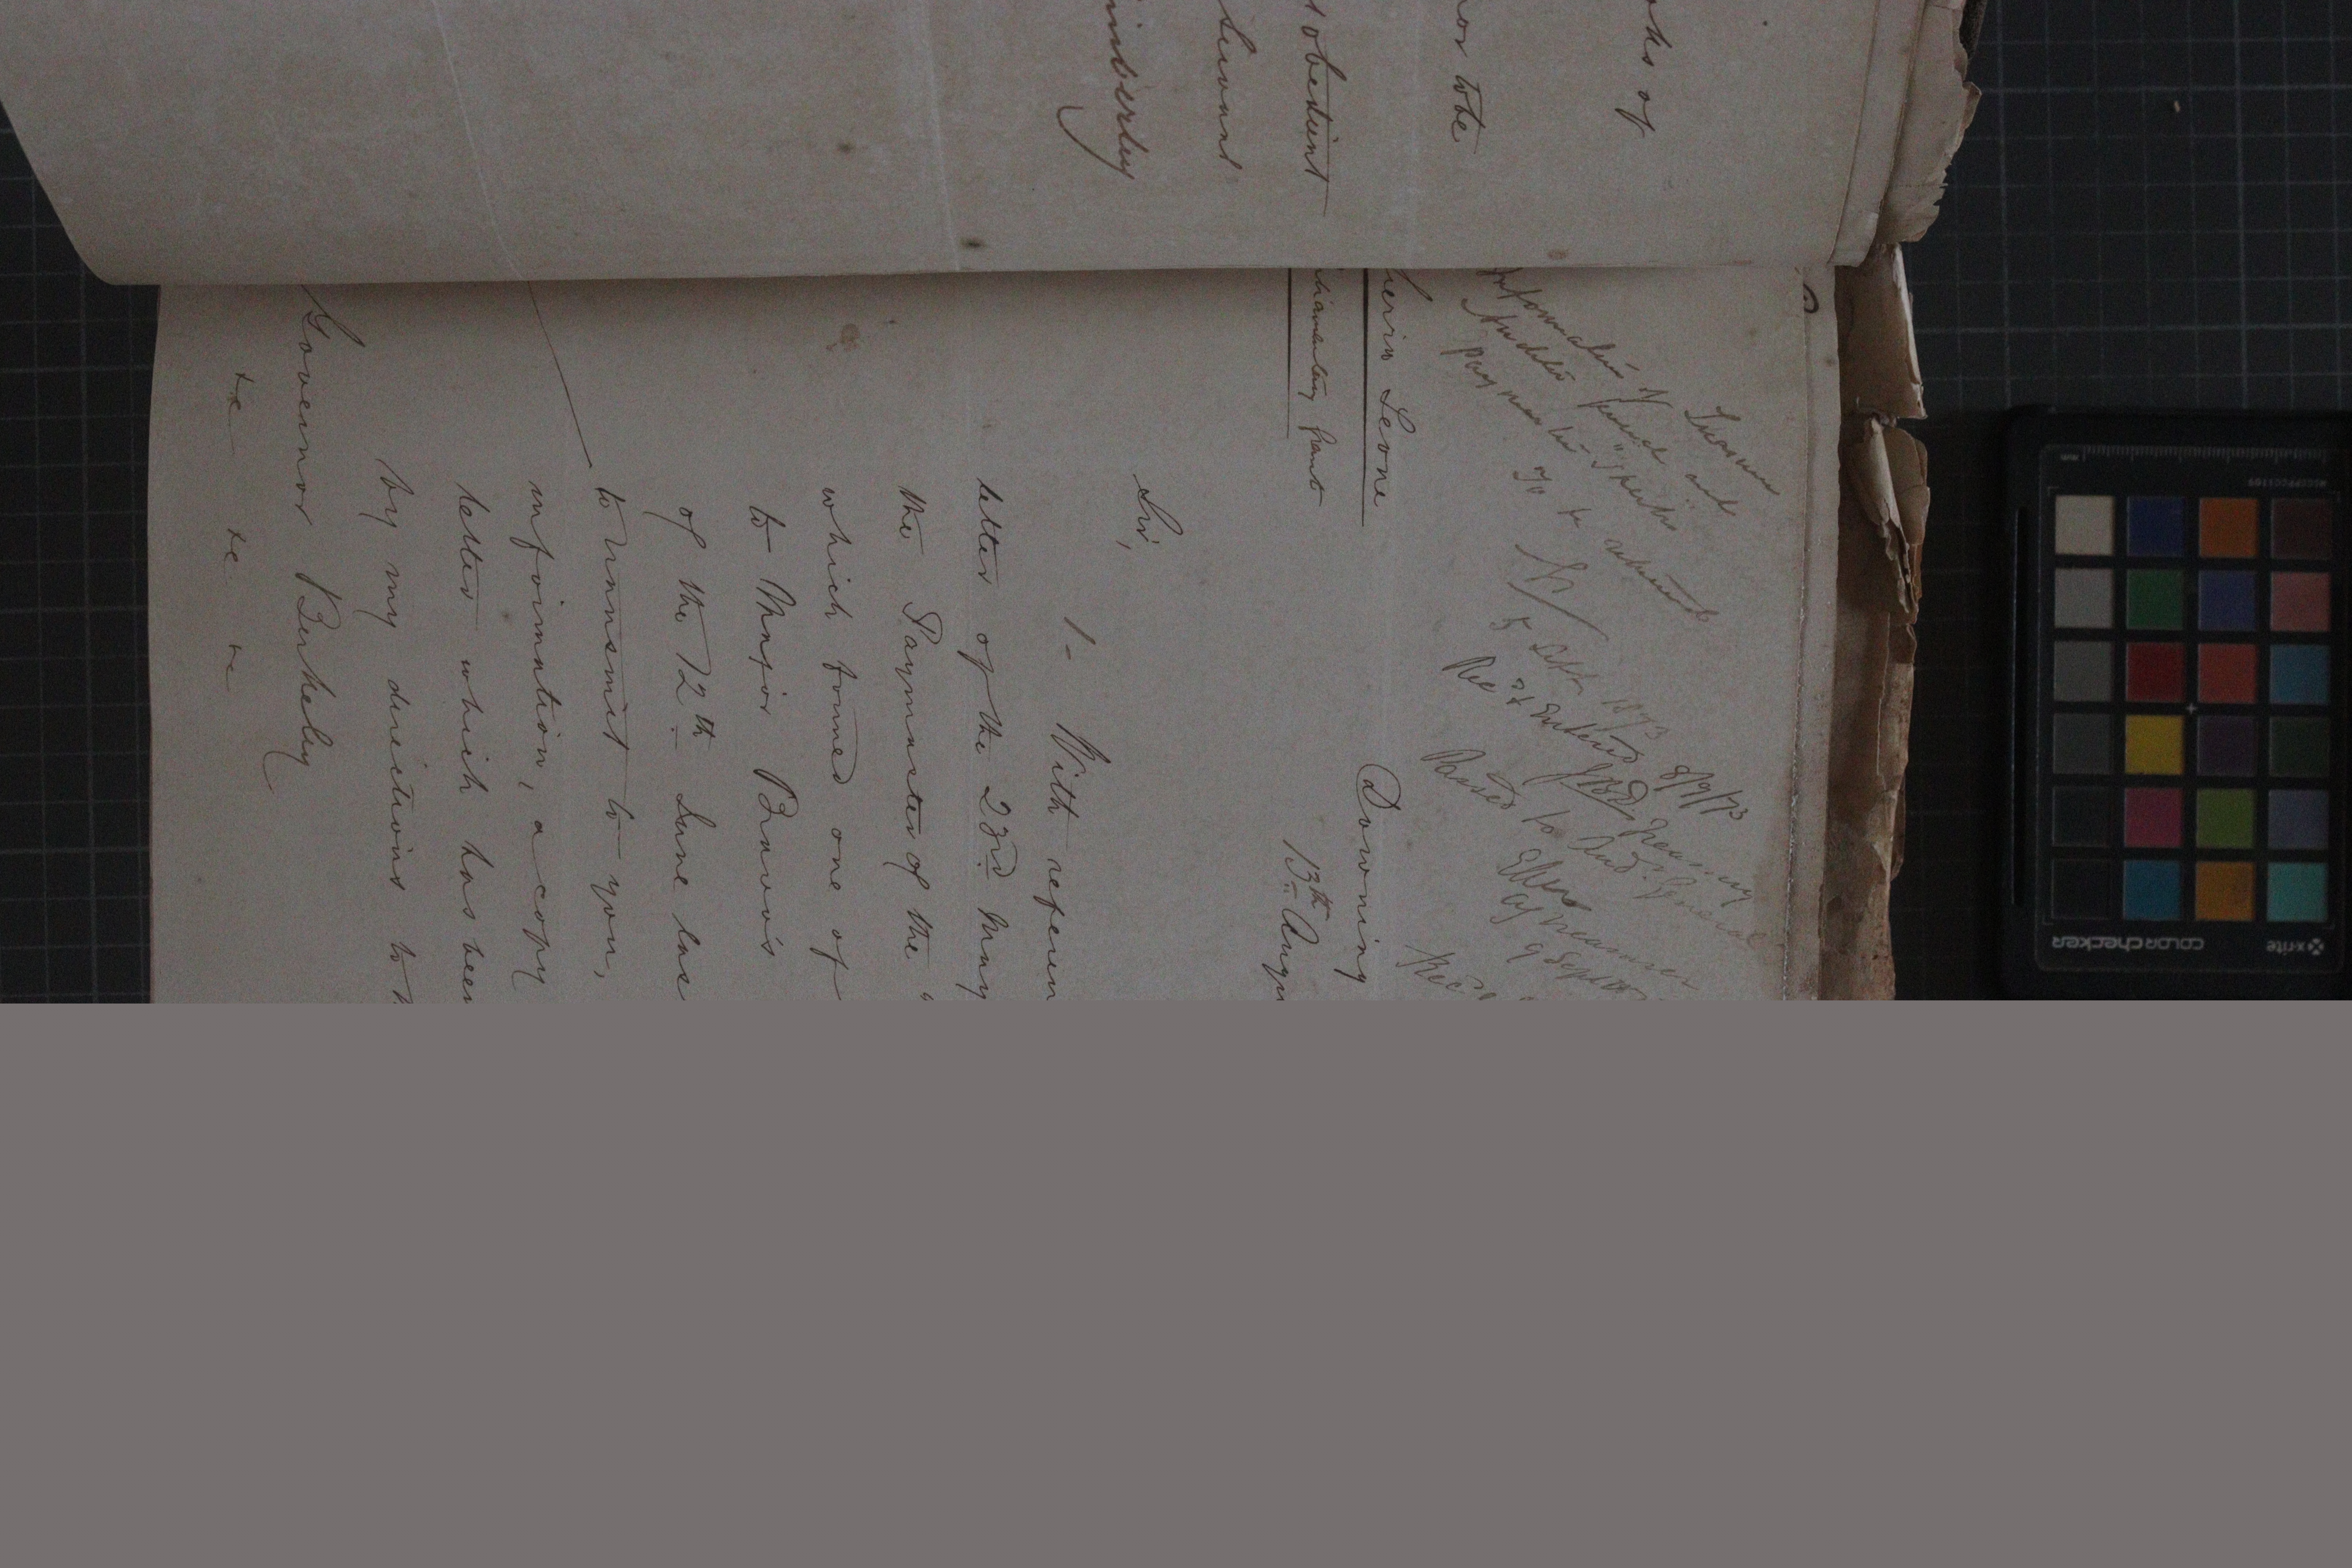 oks of
nor to be
obedient
Servant
imberley
Information of Treasurer
Auditor General and
payments
To be returned
5 Sept 1873
Rec & Entered 8/9/73
Treasury
Passed to Aud. General
Treasurer
9 Sept
Rec
Sierra Leone
liamentary Grant
Downing
13th Augu
Sir,
1- With referen
letter of the 23rd May
the Paymaster of the
which formed one of
to Major Bravo's
of the 12th June las
to transmit to you,
information, a copy
letter which has been
by my directions to
Governor Berkeley
&c &c &c